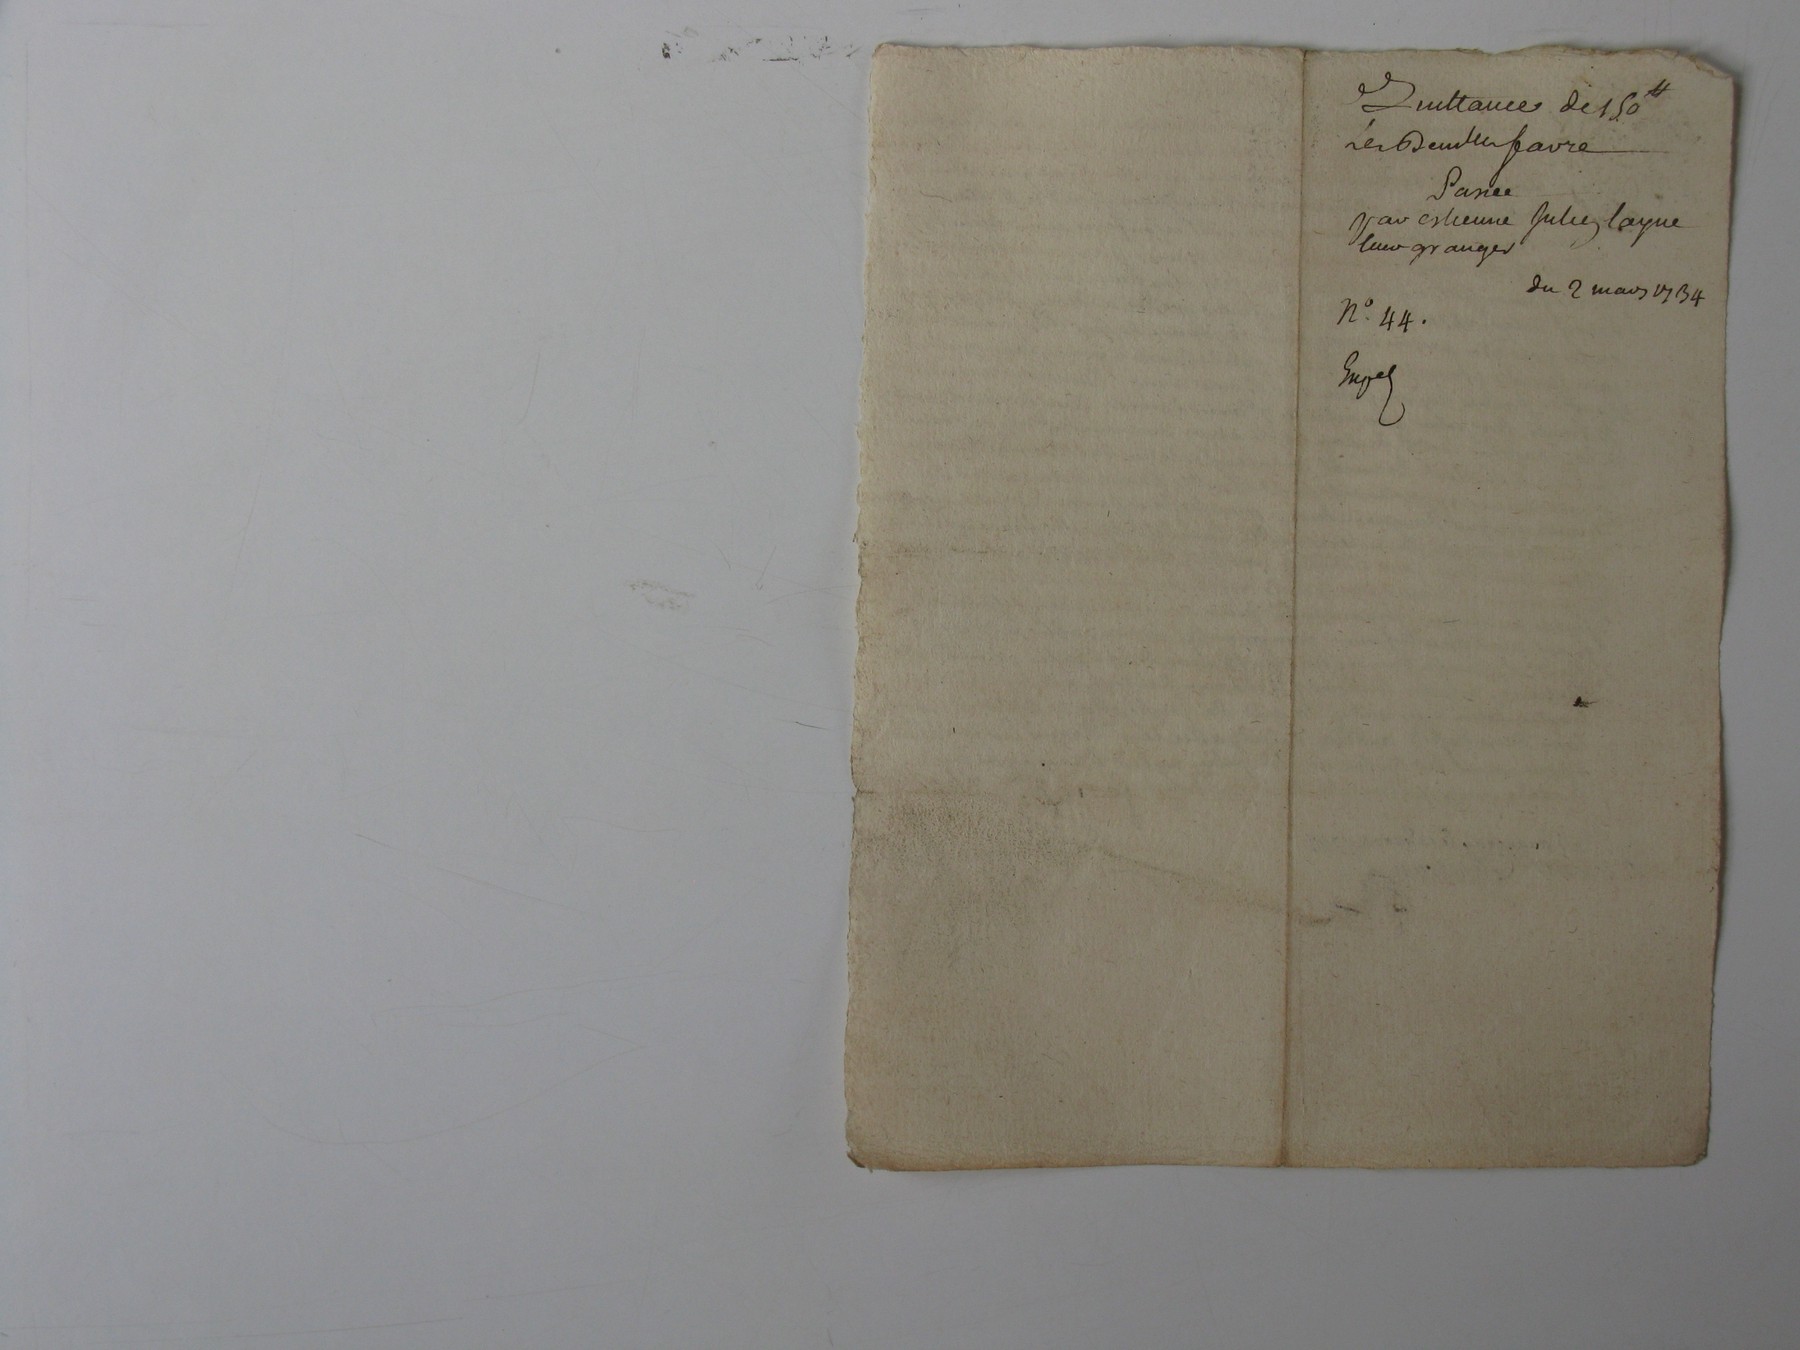 Quittance de 150 ff
les Demlles favre
Passée
par estienne Julien layne
leur granger
du 2 mars 1734
N.° 44.
Exped